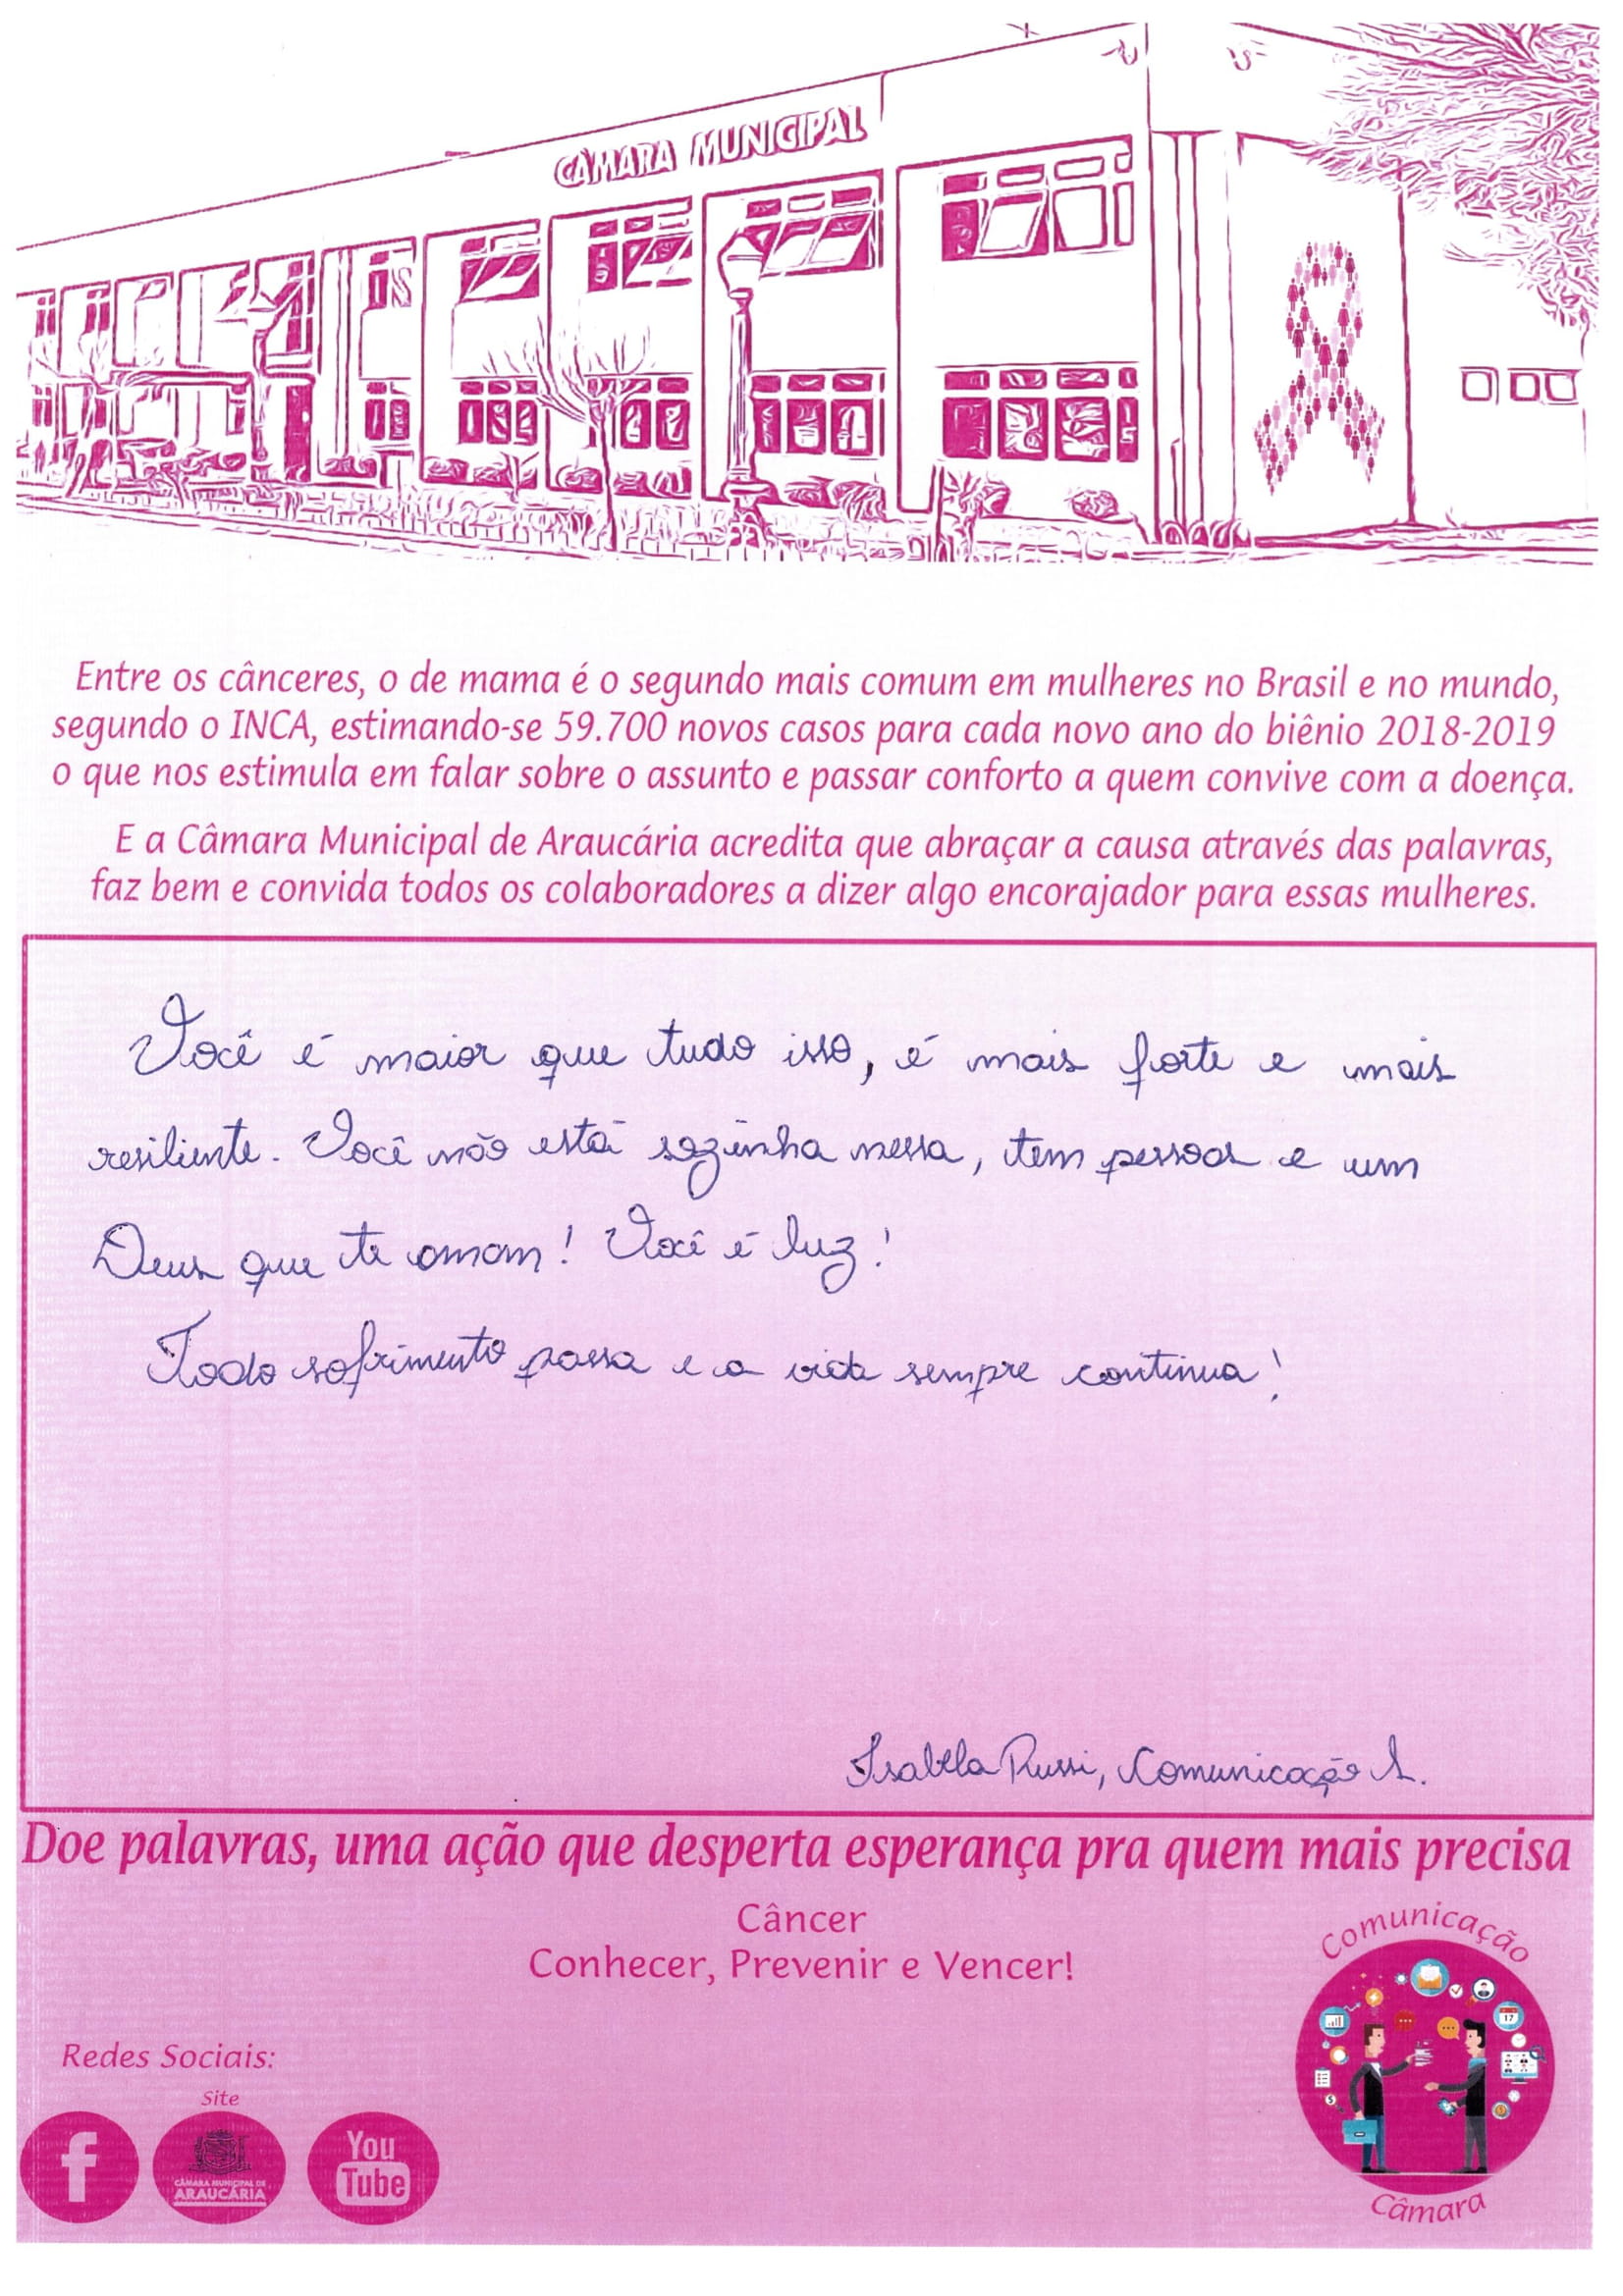 CÂMARA MUNICIPAL
Entre os cânceres, o de mama é o segundo mais comum em mulheres no Brasil e no mundo,
segundo o INCA, estimando-se 59.700 novos casos para cada novo ano do biênio 2018-2019
o que nos estimula em falar sobre o assunto e passar conforto a quem convive com a doença.
E a Câmara Municipal de Araucária acredita que abraçar a causa através das palavras,
faz bem e convida todos os colaboradores a dizer algo encorajador para essas mulheres.
Você é maior que tudo isso, é mais forte e mais
resiliente. Você não está sozinha nessa, tem pessoas e um
Deus que te amam! Você é luz!
Todo sofrimento passa e a vida sempre continua!
Isabela Russi, Comunicação S.
Doe palavras, uma ação que desperta esperança pra quem mais precisa
Câncer
Conhecer, Prevenir e Vencer!
Comunicação
17
Câmara
Redes Sociais:
Site
f
CÂMARA MUNICIPAL DE
ARAUCÁRIA
You
Tube